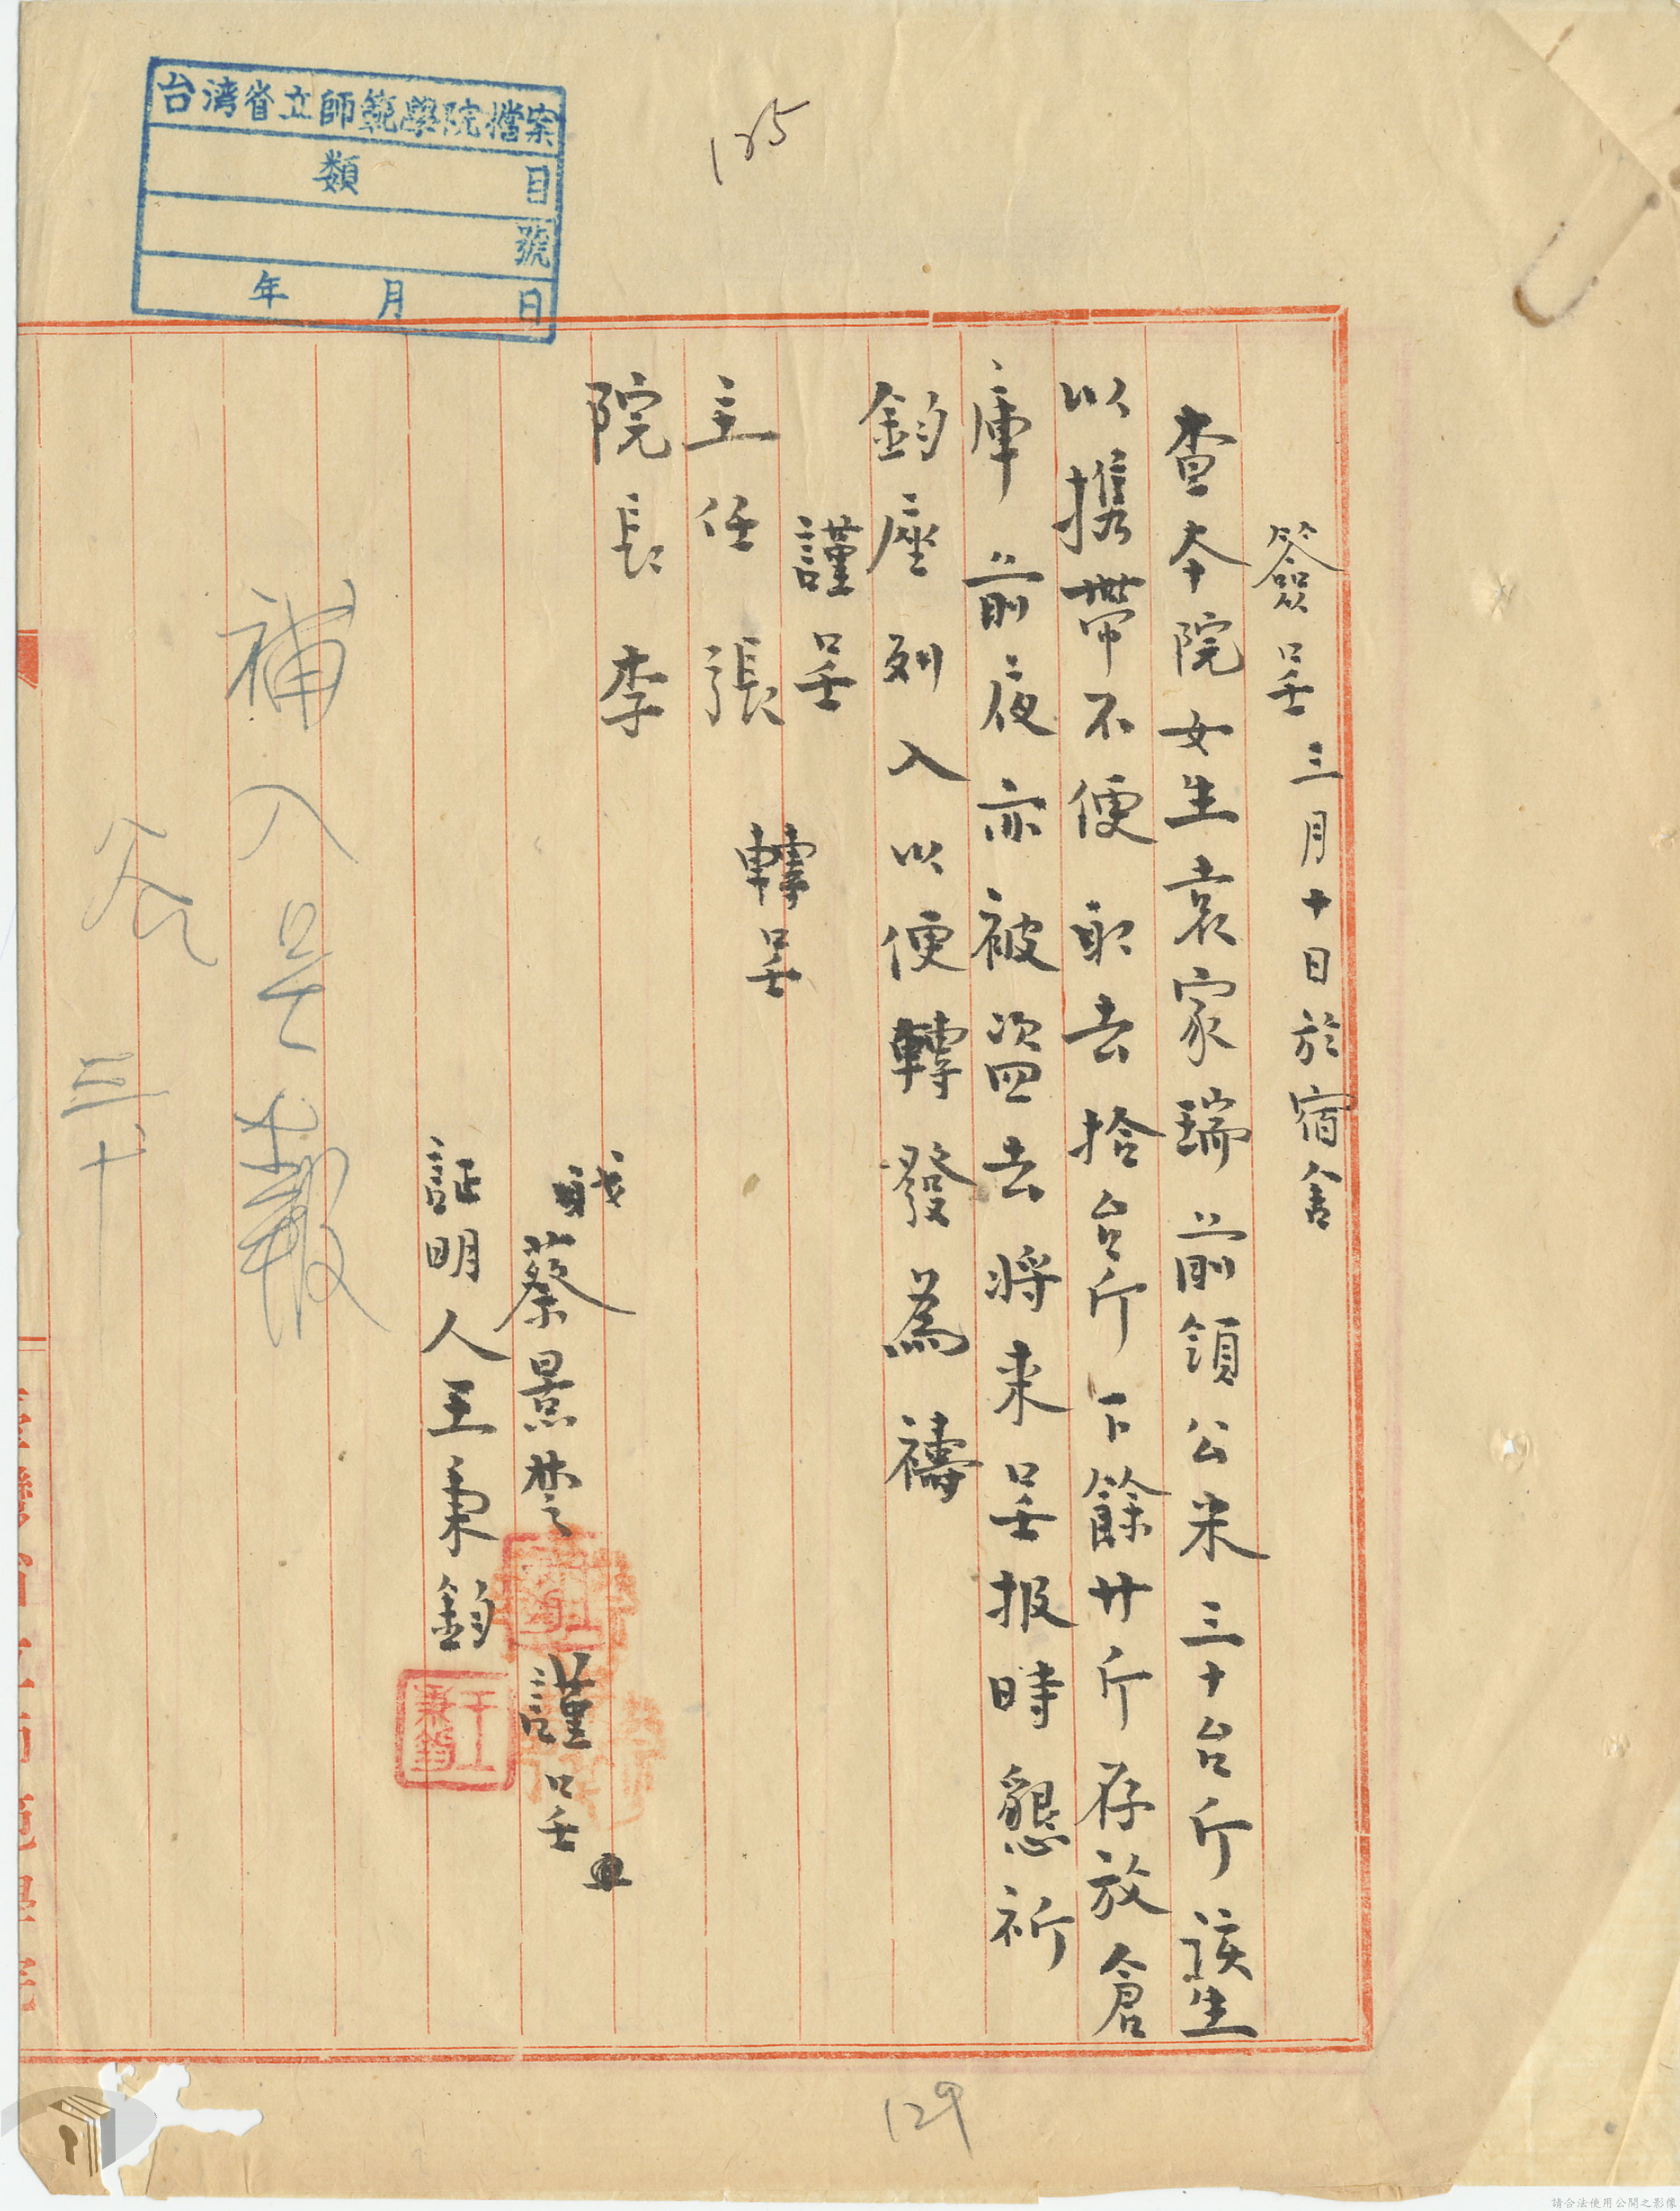 台湾省立師範學院檔案
類目
號
年月日
125
簽呈 三月十日於宿舍
查本院女生袁家瑞前領公米三十台斤該生
以携帶不便取去拾台斤下餘廿斤存放倉
庫前夜亦被盜去將来呈报時懇祈
鈞座列入以便轉發為禱
謹呈
轉呈
主任張
院長李
職
蔡景楚 謹呈
証明人王秉鈞
王秉鈞
補入呈報
三十
129
請合法使用公開之影像